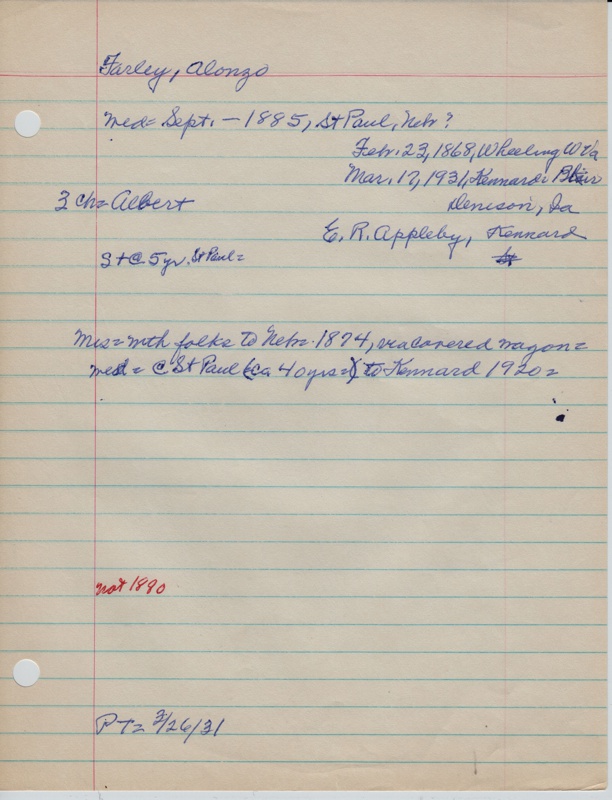 Farley, Alonzo
md = Sept. – 1885, St Paul, Nebr?
Feb. 23, 1868, Wheeling W Va
Mar. 17, 1931, Kennard: Blair
3 ch = Albert
Denison, Ia
E. R. Appleby, Kennard
S + C 5 yr. St Paul =
Mis = with folks to Nebr. 1874, via covered wagon =
md = C St Paul (ca 40 yrs =) to Kennard 1920 =
not 1890
PT = 3/26/31